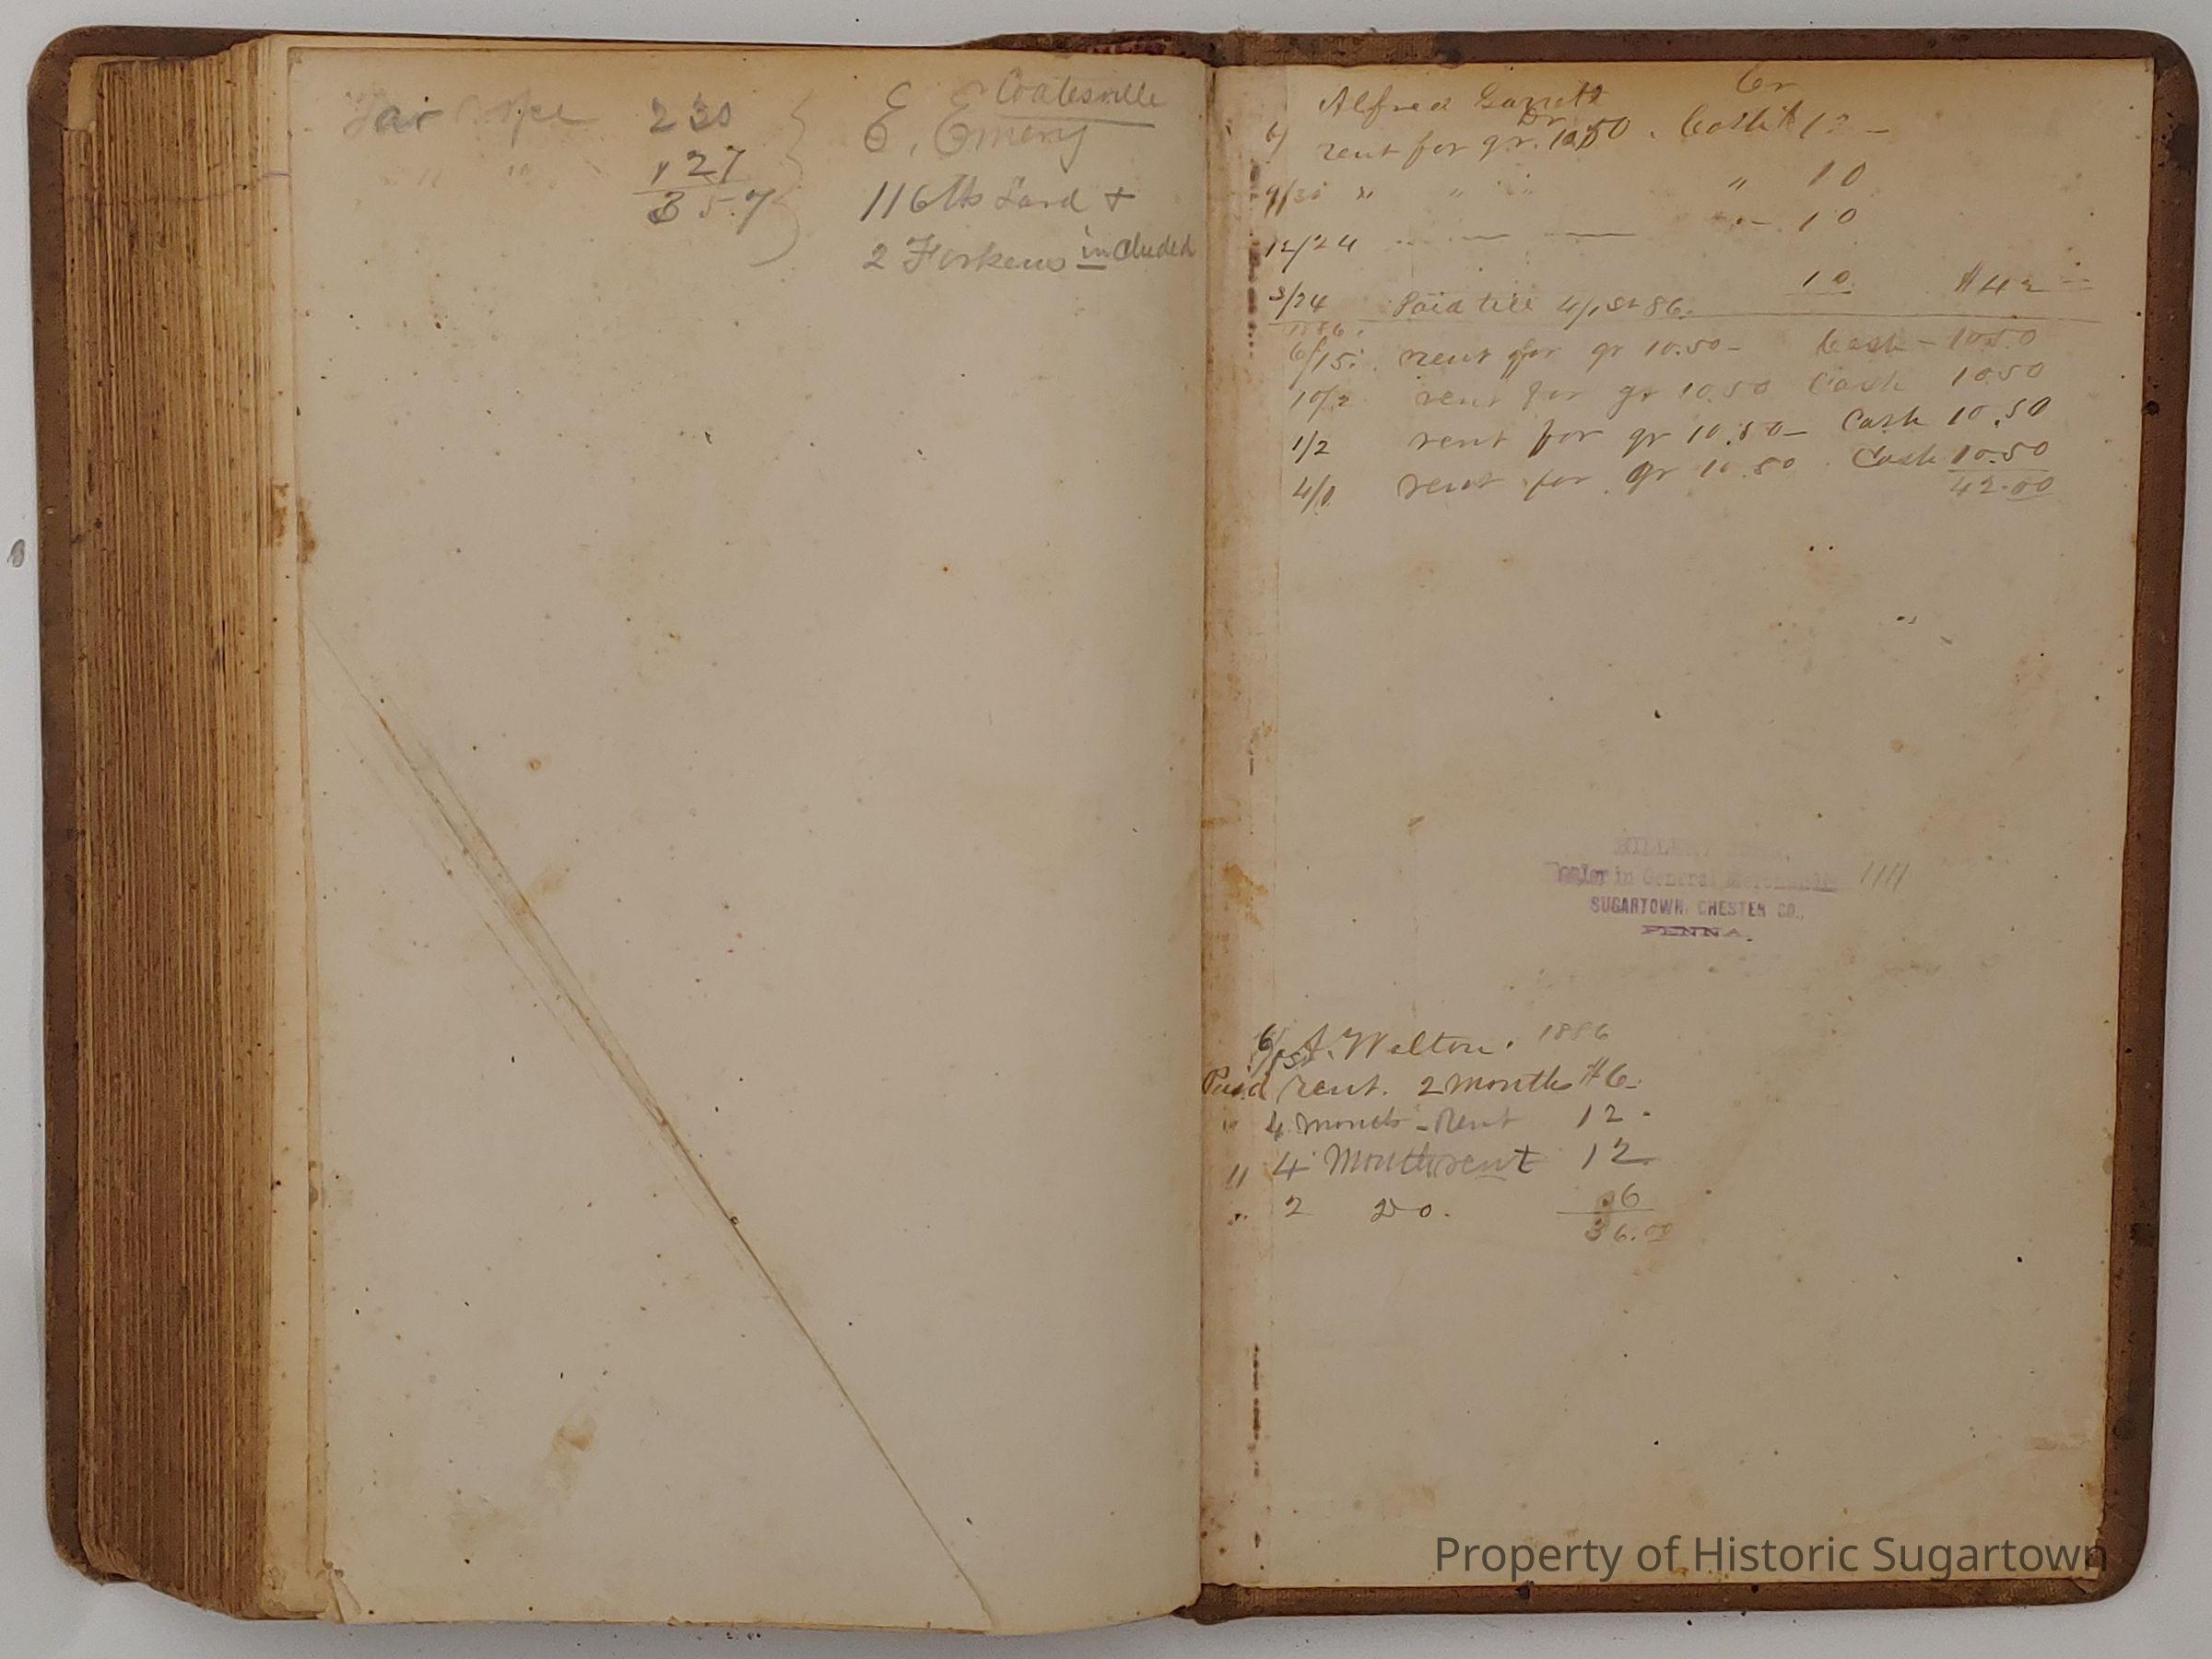 230
127
357
Coatesville
E. Emery
116 lbs Lard +
2 Firkens included
Alfred Garrett Cr
Dr
rent for qr. 10.50. Cash 12 -
9/30 " " " " 10
12/24 10
3/24 Paid till 4/1st 86. 10 $42 --
1886.
6/15. rent for qr 10.50 - Cash - 10.50
10/2 rent for qr 10.50 Cash 10.50
1/2 rent for qr 10.50 - Cash 10.50
4/1 rent for qr 10.50. Cash 10.50
42.00
Dealer in General Merchandise
SUGARTOWN, CHESTER CO.,
PENNA.
A. Welton. 1886
Paid rent. 2 months $6.
" 4 months - Rent 12 -
" 4 Months rent 12
" 2 Do. 6
36.00
Property of Historic Sugartown